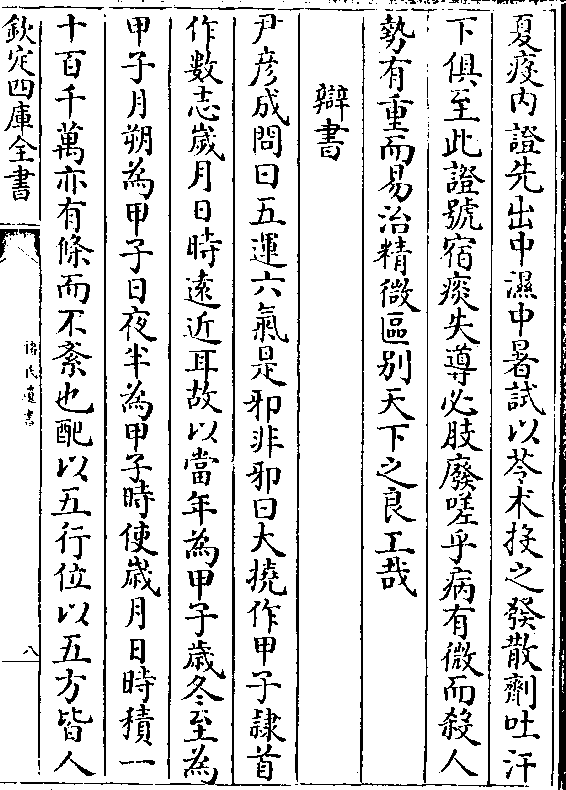 夏疫内證先出中濕中暑試以苓术投之發散劑吐汗
下俱至此證號宿痰失導必肢廢嗟乎病有微而殺人
勢有重而易治精微區别天下之良工哉
辯書
尹彦成問曰五運六氣是邪非邪曰大撓作甲子隷首
作數志嵗月日時遠近耳故以當年為甲子歲冬至為
甲子月朔為甲子日夜半為甲子時使嵗月日時積一
十百千萬亦有條而不紊也配以五行位以五方皆人
欽定四庫全書
褚氏遺書
八